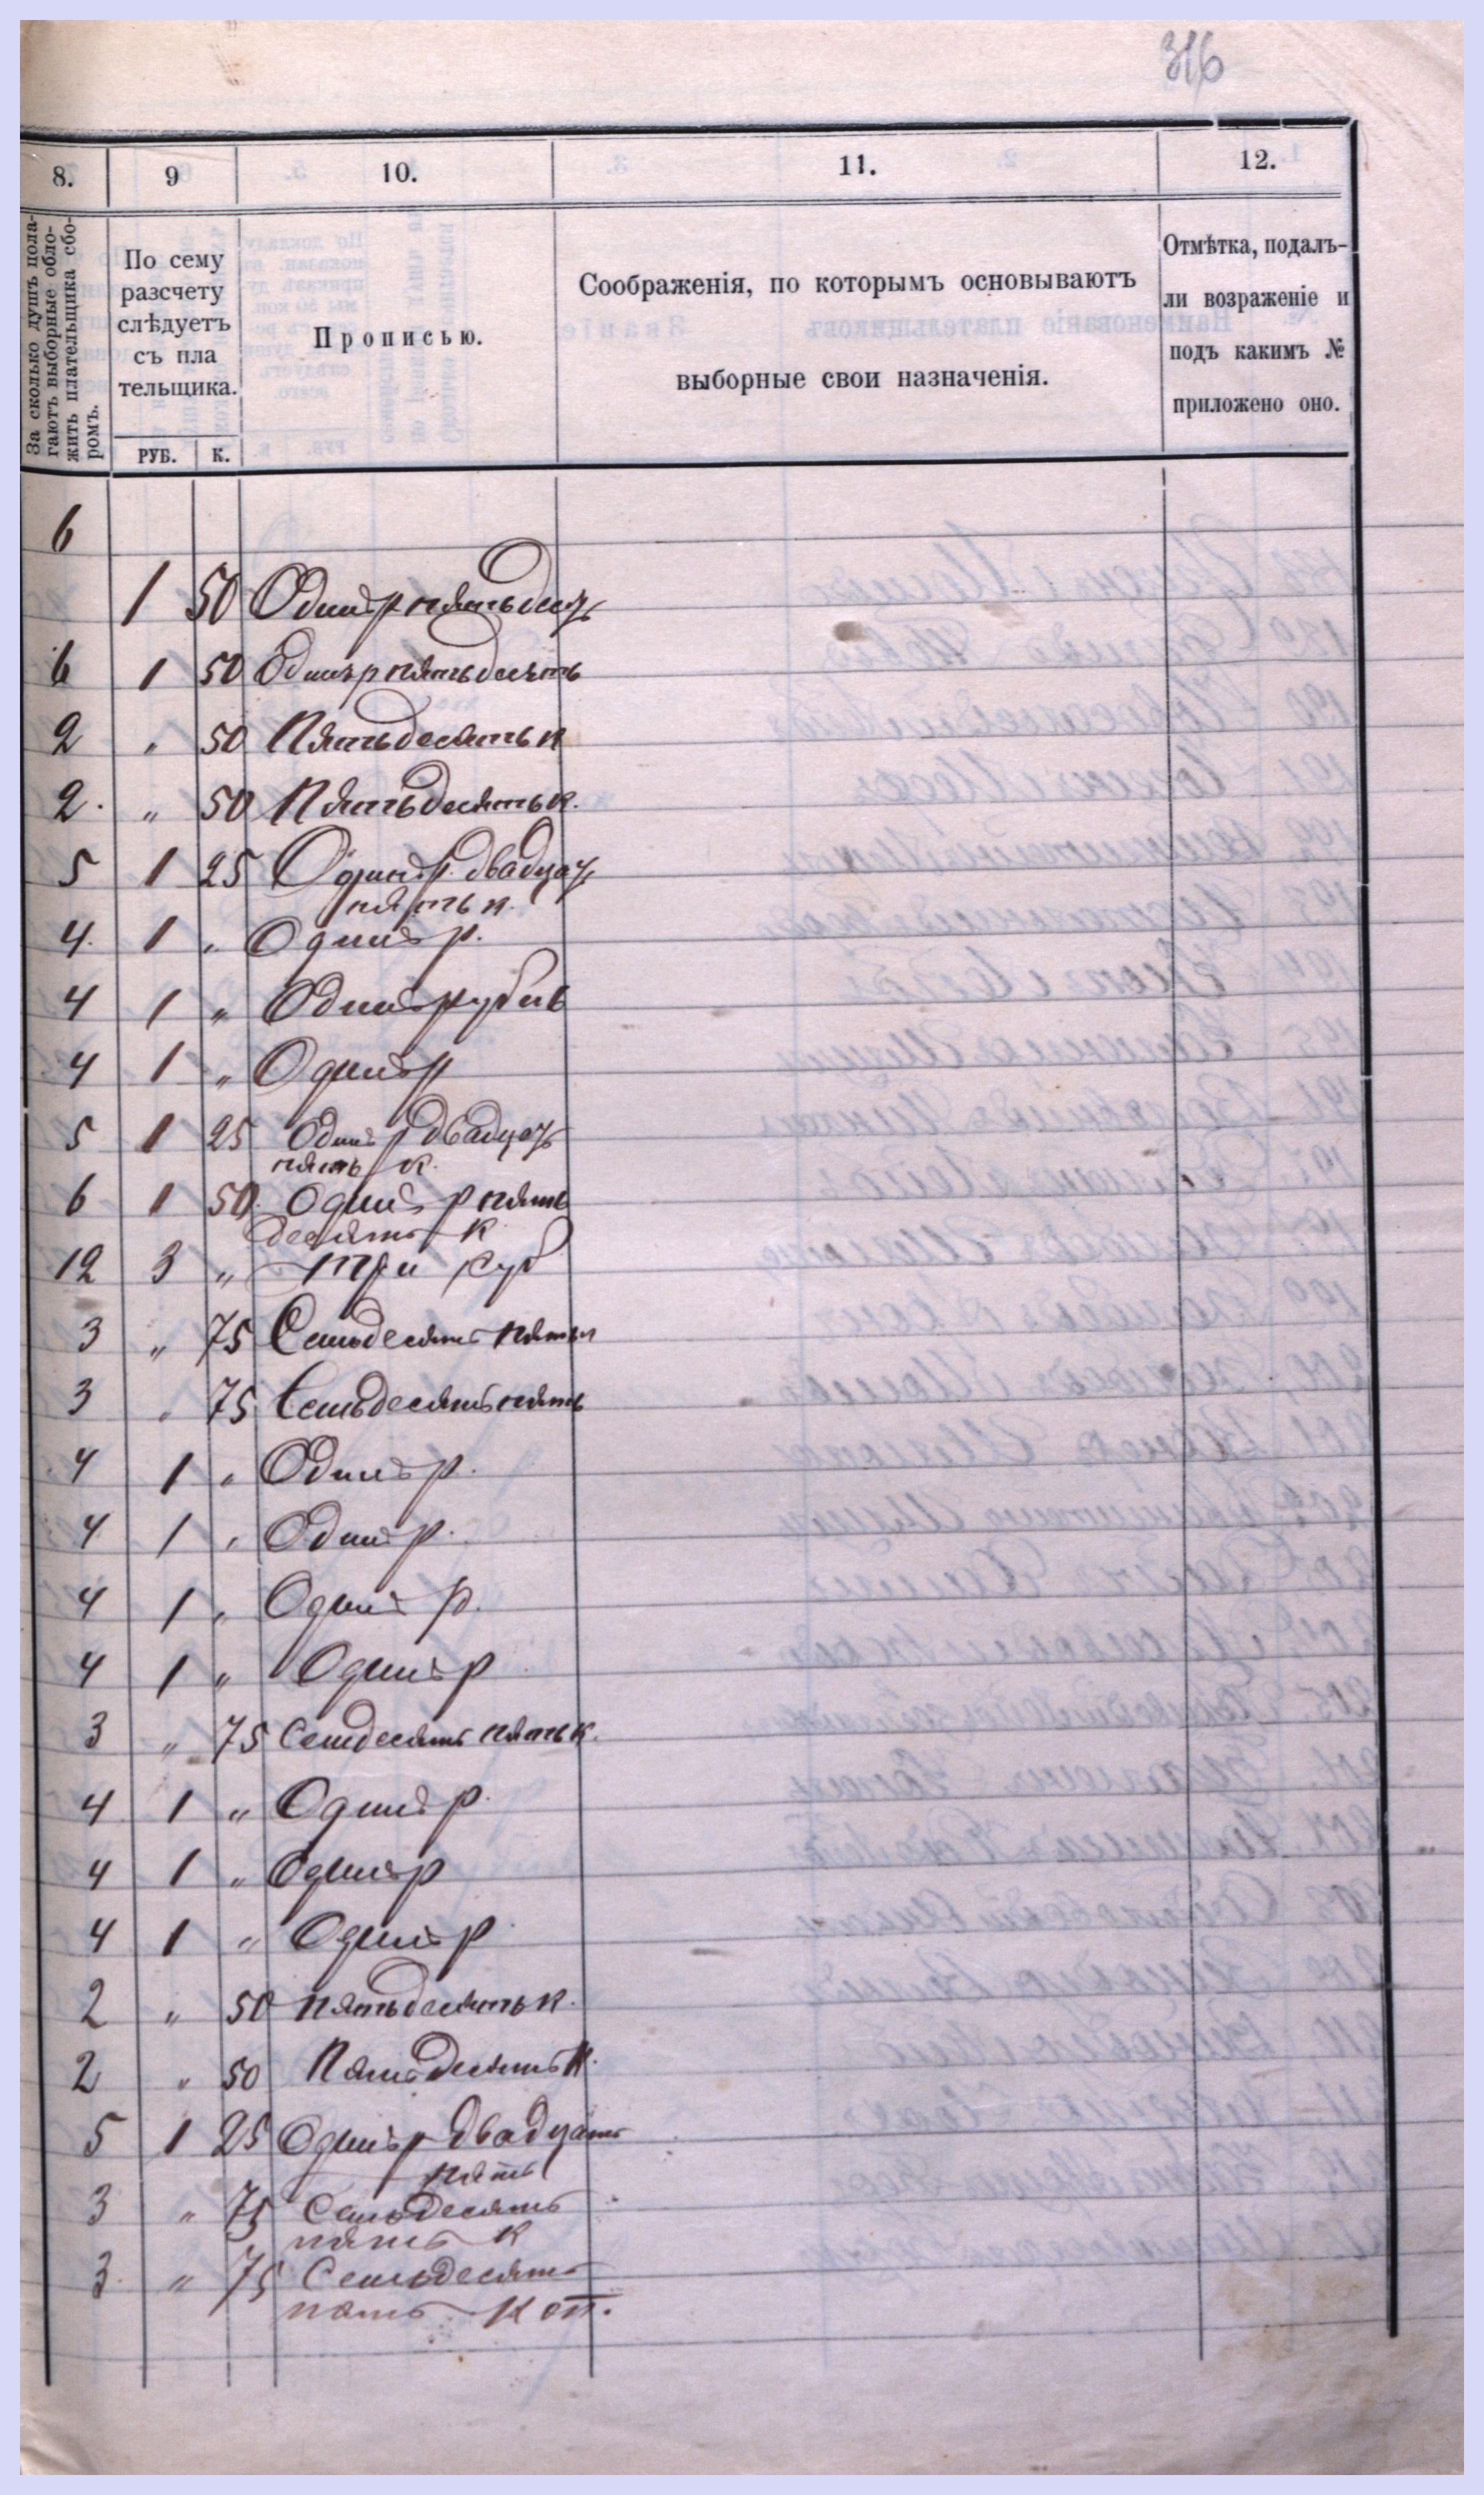 316
8. 9 10. 11. 12.
За сколько душъ пола-
гаютъ выборные обло-
жить плательщика сбо-
ромъ.
По сему
разсчету
слѣдуетъ
съ пла
тельщика.
РУБ. К.
Прописью.
Соображенія, по которымъ основываютъ
выборные свои назначенія.
Отмѣтка, подалъ-
ли возраженіе и
подъ какимъ №
приложено оно.
6
1 50 Одинъ р пятьдесят
6 1 50 Одинъ р пятьдесять
2 " 50 Пятьдесять к
2. " 50 Пятьдесять к.
5 1 25 Одинъ р. двадцат
пять к.
4. 1 " Одинъ р.
4 1 " Одинъ рубль
4 1 " Одинъ р
5 1 25 Одинъ р двадцат
пять к.
6 1 50. Одинъ р пять
десять к
12 3 " Три руб
3 " 75 Семьдесять пять к
3 " 75 Семьдесять пять
4 1 " Одинъ р.
4 1 " Одинъ р.
4 1 " Одинъ р.
4 1 " Одинъ р
3 " 75 Семдесять пять к.
4 1 " Одинъ р.
4 1 " Одинъ р
4 1 " Одинъ р
2 " 50 Пятьдесять к.
2 " 50 Пятьдесять к.
5 1 25 Одинъ р двадцать
пять
3 " 75 Семьдесять
пять к
3. " 75 Семьдесять
пять коп.